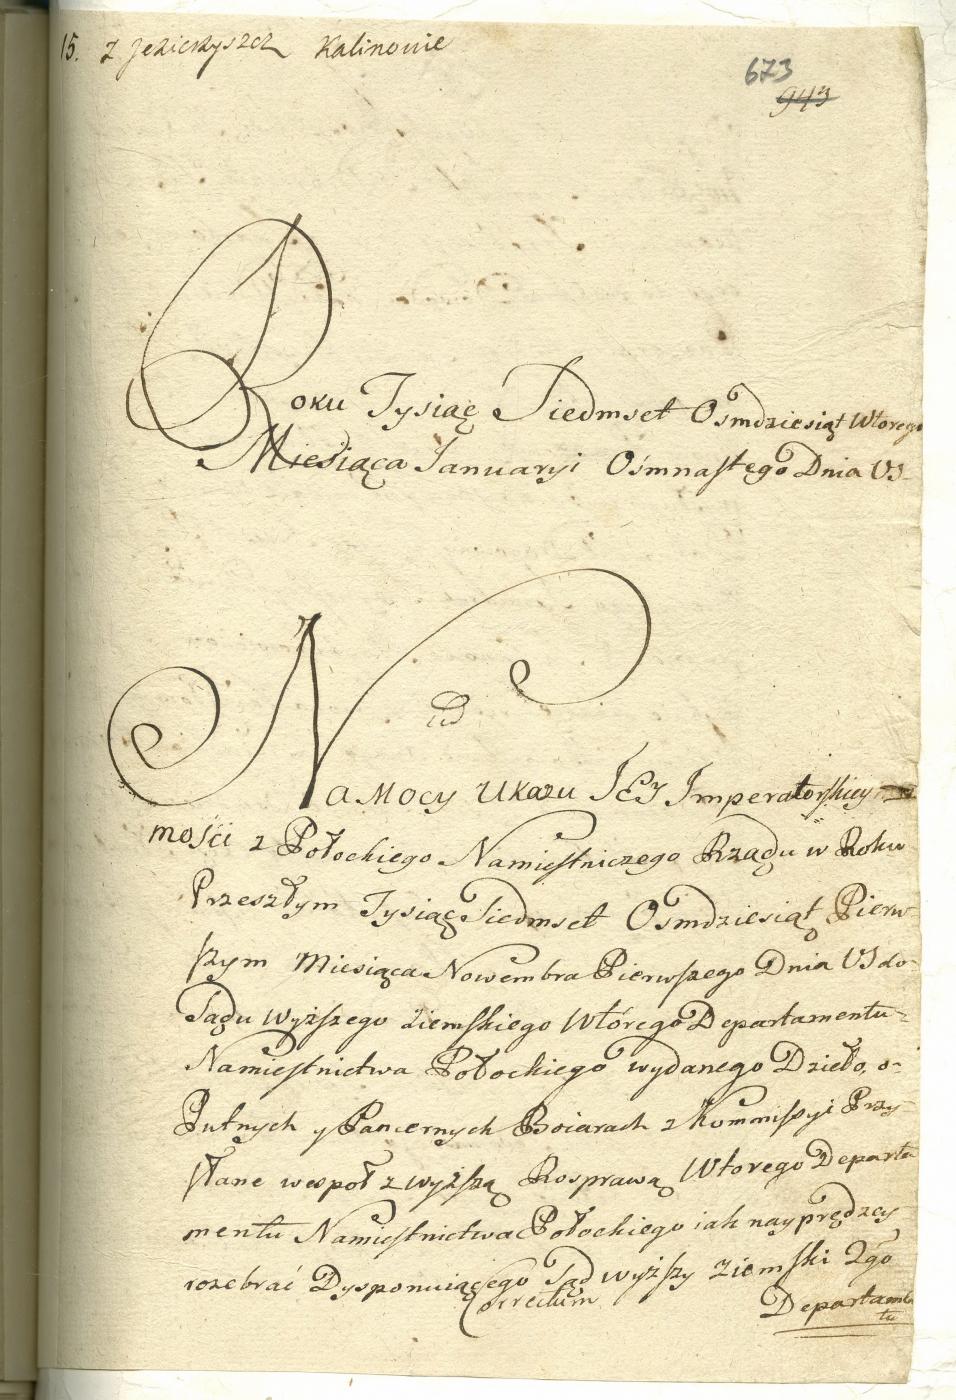 15. z Jezieryszcz Kalinowie
673
943
Roku Tysiąć Siedmset Osmdziesiąt Wtorego
Miesiąca Januaryi Ośmnastego Dnia VS
Na Mocy Ukazu JEY Imperatorskiey
mości z Połockiego Namiestniczego Rządu w Roku
Przeszłym Tysiąć Siedmset Osmdziesiąt Pierw-
szym Miesiąca Nowembra Pierwszego Dnia VS do-
Sądu Wyższego Ziemskiego Wtórego Departamentu-
Namiestnictwa Połockiego wydanego Dzieło, o-
Putnych y Pancernych Boiarach z Kommissyi Przy-
słane wespoł z wyższą Rosprawą Wtorego Departa
mentu Namiestnictwa Połockiego iak nayprędzey
rozebrać Dysponuiącego Sąd wyższy Ziemski 2go
Correctum
Departamen
tu